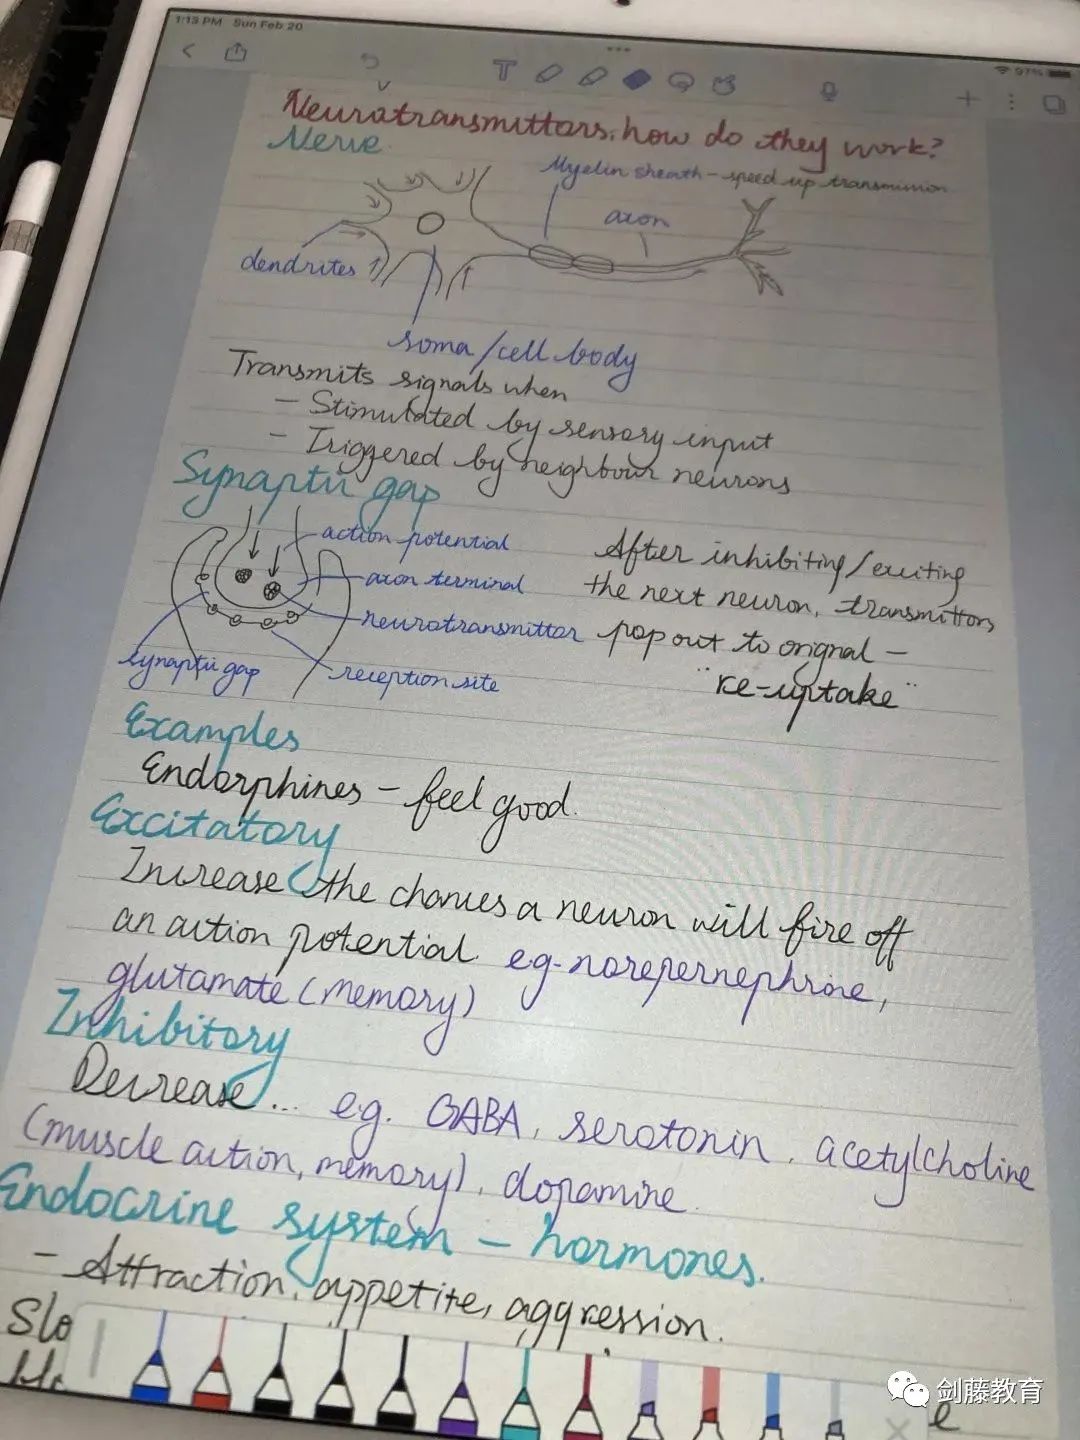 1:13 PM Sun Feb 20
97%
Neurotransmittors, how do they work?
Nerve
Myelin sheath - speed up transmission
axon
dendrites
soma/cell body
Transmits signals when
- Stimulated by sensory input
- Triggered by neighbour neurons
Synaptic gap
action potential
axon terminal
neurotransmittor
synaptic gap
reception site
After inhibiting/exciting
the next neuron, transmittors
pop out to orignal -
"re-uptake"
Examples
Endorphines - feel good.
Excitatory
Increase the chances a neuron will fire off
an action potential. eg. norepernephrine,
glutamate (memory)
Inhibitory
Decrease... e.g. GABA, serotonin, acetylcholine
(muscle action, memory), dopamine.
Endocrine system - hormones.
- Attraction, appetite, aggression.
Slo
剑藤教育
e